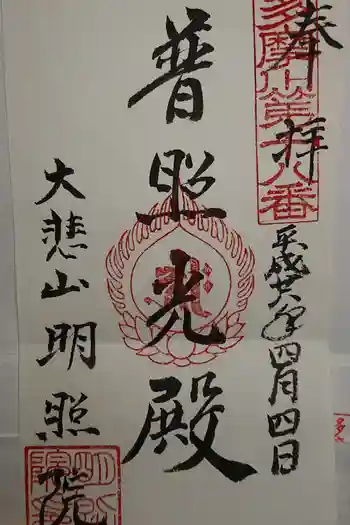 奉拝
多摩川第十八番
平成廿八年四月四日
普照光殿
大悲山明照院